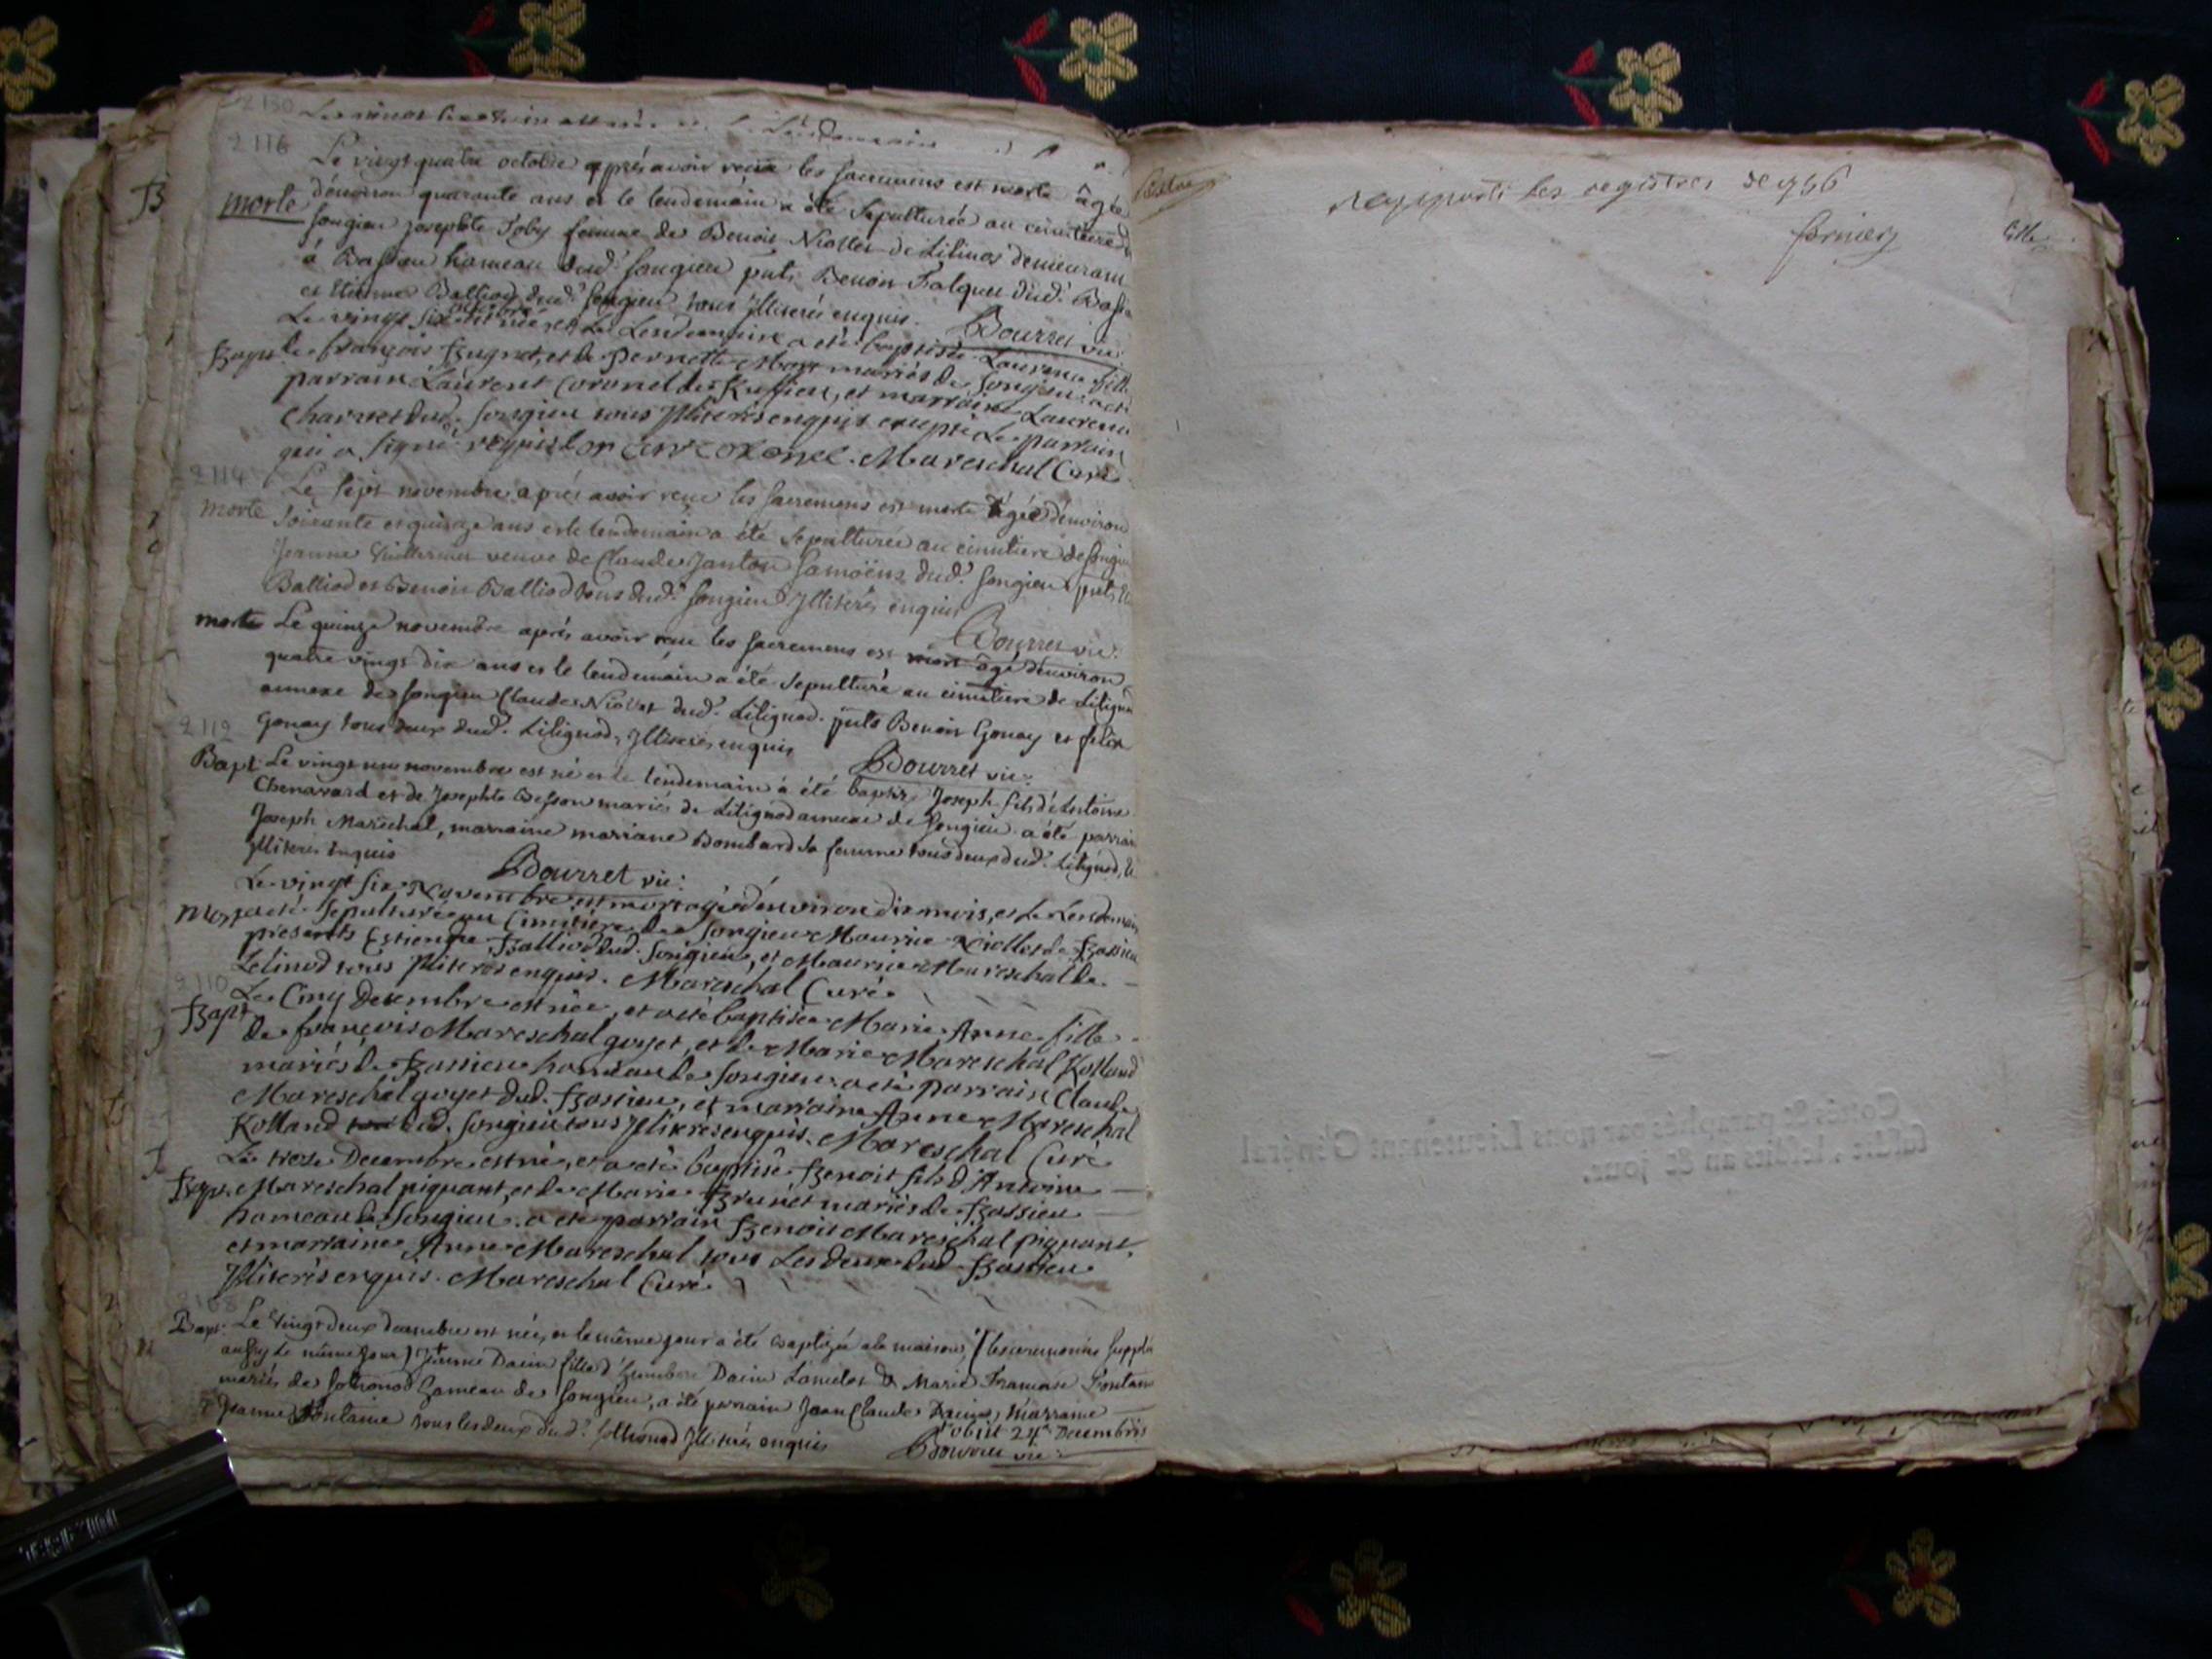 2130
2116
Le vingt quatre octobre après avoir recu les sacremens est morte âgée
morte
d'environ quarante ans et le lendemain a été sepulturée au cimitiere
songieu josephte Joby femme de Benoit Niollet de Lilinod demeurant
à Bassieu hameau dud. songieu pnts Benoit Falquet dud. Bass
et Etienne Balliod dud. songieu tous Illiterés enquis.
Bourret vic:
Le vingt six octobre est née et le Lendemain a eté baptisée Laurence fille
Bapt. de françois Bugnet, et de Pernette mariés de Songieu a eté
parrain Laurent Coronel de Ruffieu, et marraine Laurence
Charvet dud. Songieu tous Illiterés enquis excepté Le parrain
qui a signé requis Coronel. Mareschal Curé
2114
Le sept novembre après avoir recu les sacremens est morte âgée d'environ
morte
soixante et quinze ans et le lendemain a été sepulturée au cimitiere de songieu
Jeanne veuve de Claude Janton Samoëns dud. songieu pnts
Balliod et Benoit Balliod tous dud. songieu Illiterés enquis
Bourret vic:
morte Le quinze novembre après avoir recu les sacremens est mort âgé d'environ
quatre vingt dix ans et le lendemain a été sepulturé au cimitiere de Litignod
annexe de songieu Claude Niollet dud. Litignod. pnts Benoit Gonay et felix
Gonay tous deux dud. Litignod, Illiterés enquis
2112
Bourret vic:
Bapt Le vingt un novembre est né et le lendemain à été baptisé Joseph fils d'Antoine
Chenavard et de Josephte Besson mariés de Litignod annexe de songieu a été parrain
Joseph Maréchal, marraine mariane Bombard sa femme tous deux dud. Litignod,
Illiterés enquis
Bourret vic:
Le vingt six Novembre est mort agé d'environ dix mois, et Le Lendemain
Mort a eté sepulturé au Cimitiere de Songieu Maurice Niollet de Bassieu
presents Estienne Balliod dud. Songieu, et Maurice Mareschal de
Lelinod tous Illiterés enquis. Mareschal Curé
2110
Le Cinq Decembre est née, et a eté baptisée Marie Anne fille
Bapt
de françois Mareschal goyet, et de Marie Mareschal Rolland
mariés de Bassieu hameau de Songieu a eté parrain Claude
Mareschal goyet dud. Bassieu, et marraine Anne Mareschal
Rolland dud. Songieu tous Illiterés enquis. Mareschal Curé
Le treze Decembre est né, et a eté baptisé Benoit fils d'Antoine
Bapt. Mareschal piquant, et de Marie Brunet mariés de Bassieu
hameau de Songieu. a eté parrain Benoit Mareschal piquant,
et marraine Anne Mareschal tous Les deux dud. Bassieu
Illiterés enquis. Mareschal Curé.
2108
Bapt. Le vingt deux decembre est née, et le même jour a été baptizée a la maison, (les ceremonies supplé
aussy le même jour) Jeanne Dain fille d'humbert Dain Lancelot & Marie Francoise Fontane
mariés de Sothonod hameau de Songieu, a été parrain Jean Claude Dain, Marraine
Jeanne Fontaine tous les deux dud. Sothonod Illiterés enquis
obiit 24 Decembris
Bourret vic:
rapporté les registres de 1756
Cottés & paraphés par nous Lieutenant Général
susdit, lesdits an & jour.